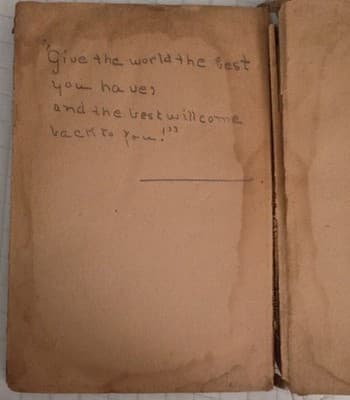 "Give the world the best
you have,
and the best will come
back to you."